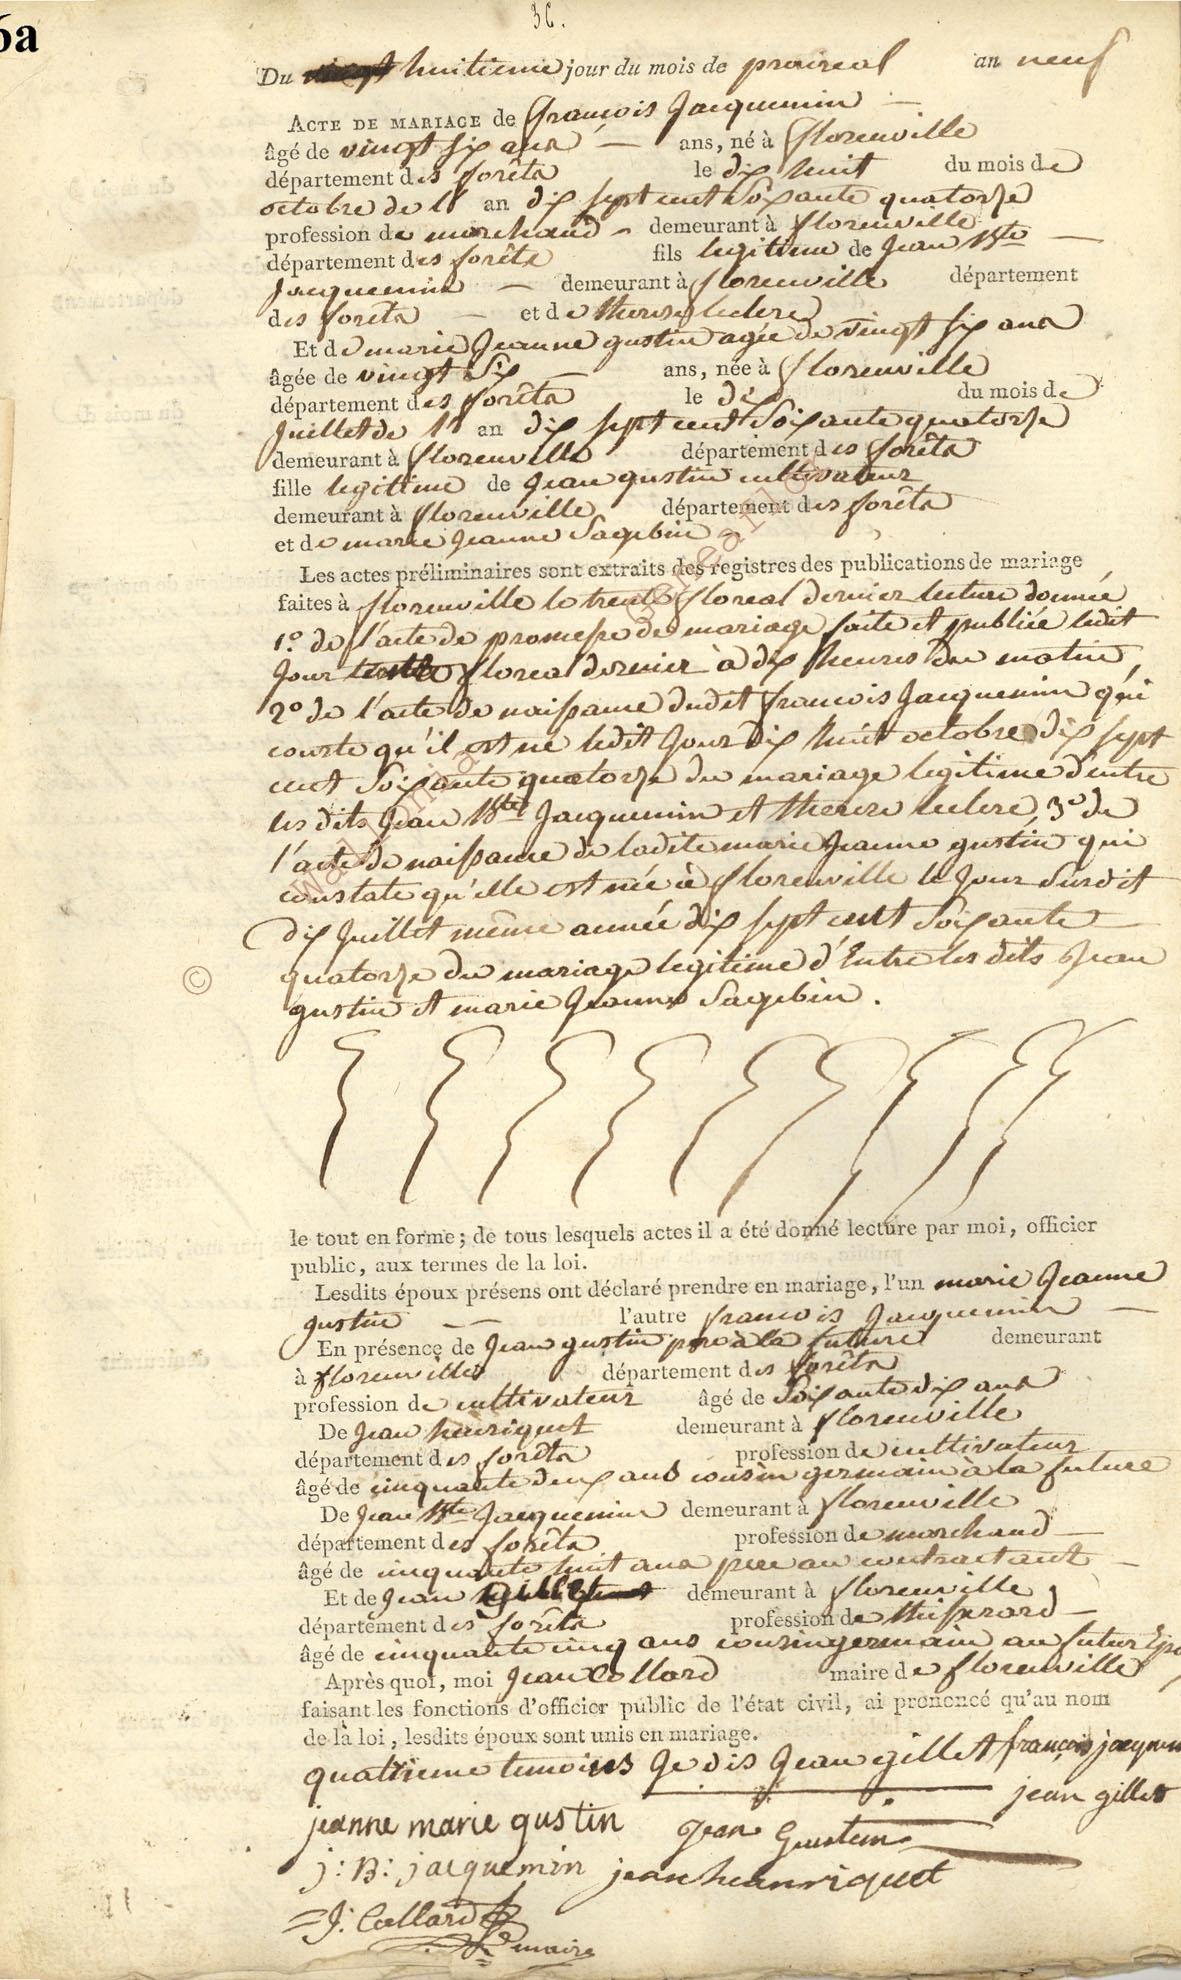 6a
36.
Du huitieme jour du mois de praireal an neuf
ACTE DE MARIAGE de françois Jacquemin
âgé de vingt six ans ans, né à florenville
département des forêts le dix huit du mois de
octobre de l' an dix sept cent soixante quatorze
profession de marchand demeurant à florenville
département des forêts fils legitime de Jean Bte
Jacquemin demeurant à florenville département
des forêts et de therese leclere
Et de marie Jeanne gustin agée de vingt six ans
âgée de vingt six ans, née à florenville
département des forêts le dix du mois de
Juillet de l' an dix sept cent soixante quatorze
demeurant à florenville département des forêts
fille legittime de Jean gustin cultivateur
demeurant à florenville département des forêts
et de marie Jeanne Sagebin
Les actes préliminaires sont extraits des registres des publications de mariage
faites à florenville le trente floreal dernier lecture donnée
1.o de l'acte de promesse de mariage faite et publiée ledit
Jour trente floreal dernier à dix heures du matin,
2o de l'acte de naissance dudit francois Jacquemin qui
conste qu'il est né ledit Jour dix huit octobre dix sept
cent soixante quatorze du mariage legitime d'entre
les dits Jean Bte Jacquemin et therese leclere, 3o de
l'acte de naissance de ladite marie Jeanne gustin qui
constate qu'elle est née à florenville le Jour susdit
dix Juillet même année dix sept cent soixante
quatorze du mariage legitime d'Entre les dits Jean
gustin et marie Jeanne Sagebin.
©
le tout en forme; de tous lesquels actes il a été donné lecture par moi, officier
public, aux termes de la loi.
Lesdits époux présens ont déclaré prendre en mariage, l'un marie Jeanne
gustin l'autre francois Jacquemin
En présence de Jean gustin pere à la future demeurant
à florenville département des forêts
profession de cultivateur âgé de soixante dix ans
De Jean henriquet demeurant à florenville
département des forêts profession de cultivateur
âgé de cinquante deux ans cousin germain à la future
De Jean Bte Jacquemin demeurant à florenville
département des forêts profession de marchand
âgé de cinquante huit ans pere au contractant
Et de Jean demeurant à florenville
département des forêts profession de thisserand
âgé de cinquante cinq ans cousin germain au futur
Après quoi, moi Jean Collard maire de florenville
faisant les fonctions d'officier public de l'état civil, ai prononcé qu'au nom
de la loi, lesdits époux sont unis en mariage.
quatrieme temoins Je dis Jean gillet françois jacquemin
jean gillet
jeanne marie gustin Jean Gustin
j: B: jacquemin jean henriquet
J: Collard
maire